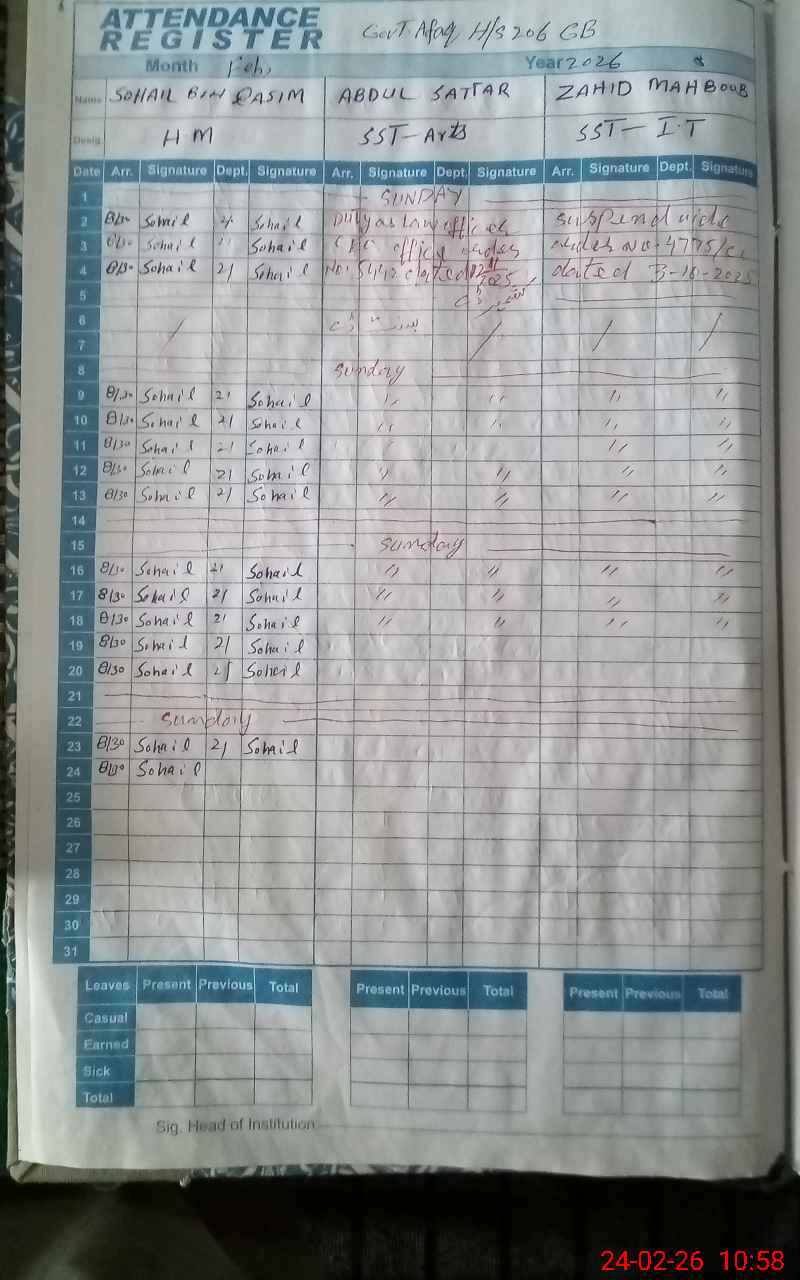 ATTENDANCE REGISTER
Govt. Afaq H/S 206 GB
Month Feb, Year 2026
Name SOHAIL BIN QASIM ABDUL SATTAR ZAHID MAHBOUB
Desig. HM SST-Arts SST-I.T
Date Arr. Signature Dept. Signature Arr. Signature Dept. Signature Arr. Signature Dept. Signature
1 SUNDAY
2 8/30 Sohail Sohail Duty as Law officer suspend vide
3 8/30 Sohail 21 Sohail office order order No. 4775/
4 8/30 Sohail 21 Sohail No. 5442 dated 2025 dated 3-10-2025
5
6
7
8 Sunday
9 8/30 Sohail 21 Sohail " " " "
10 8/30 Sohail 21 Sohail " " " "
11 8/30 Sohail 21 Sohail " " " "
12 8/30 Sohail 21 Sohail " " " "
13 8/30 Sohail 21 Sohail " " " "
14
15 Sunday
16 8/30 Sohail 21 Sohail " " " "
17 8/30 Sohail 21 Sohail " " " "
18 8/30 Sohail 21 Sohail " " " "
19 8/30 Sohail 21 Sohail
20 8/30 Sohail 21 Sohail
21
22 Sunday
23 8/30 Sohail 21 Sohail
24 8/30 Sohail
25
26
27
28
29
30
31
Leaves Present Previous Total Present Previous Total Present Previous Total
Casual
Earned
Sick
Total
Sig. Head of Institution
24-02-26 10:58